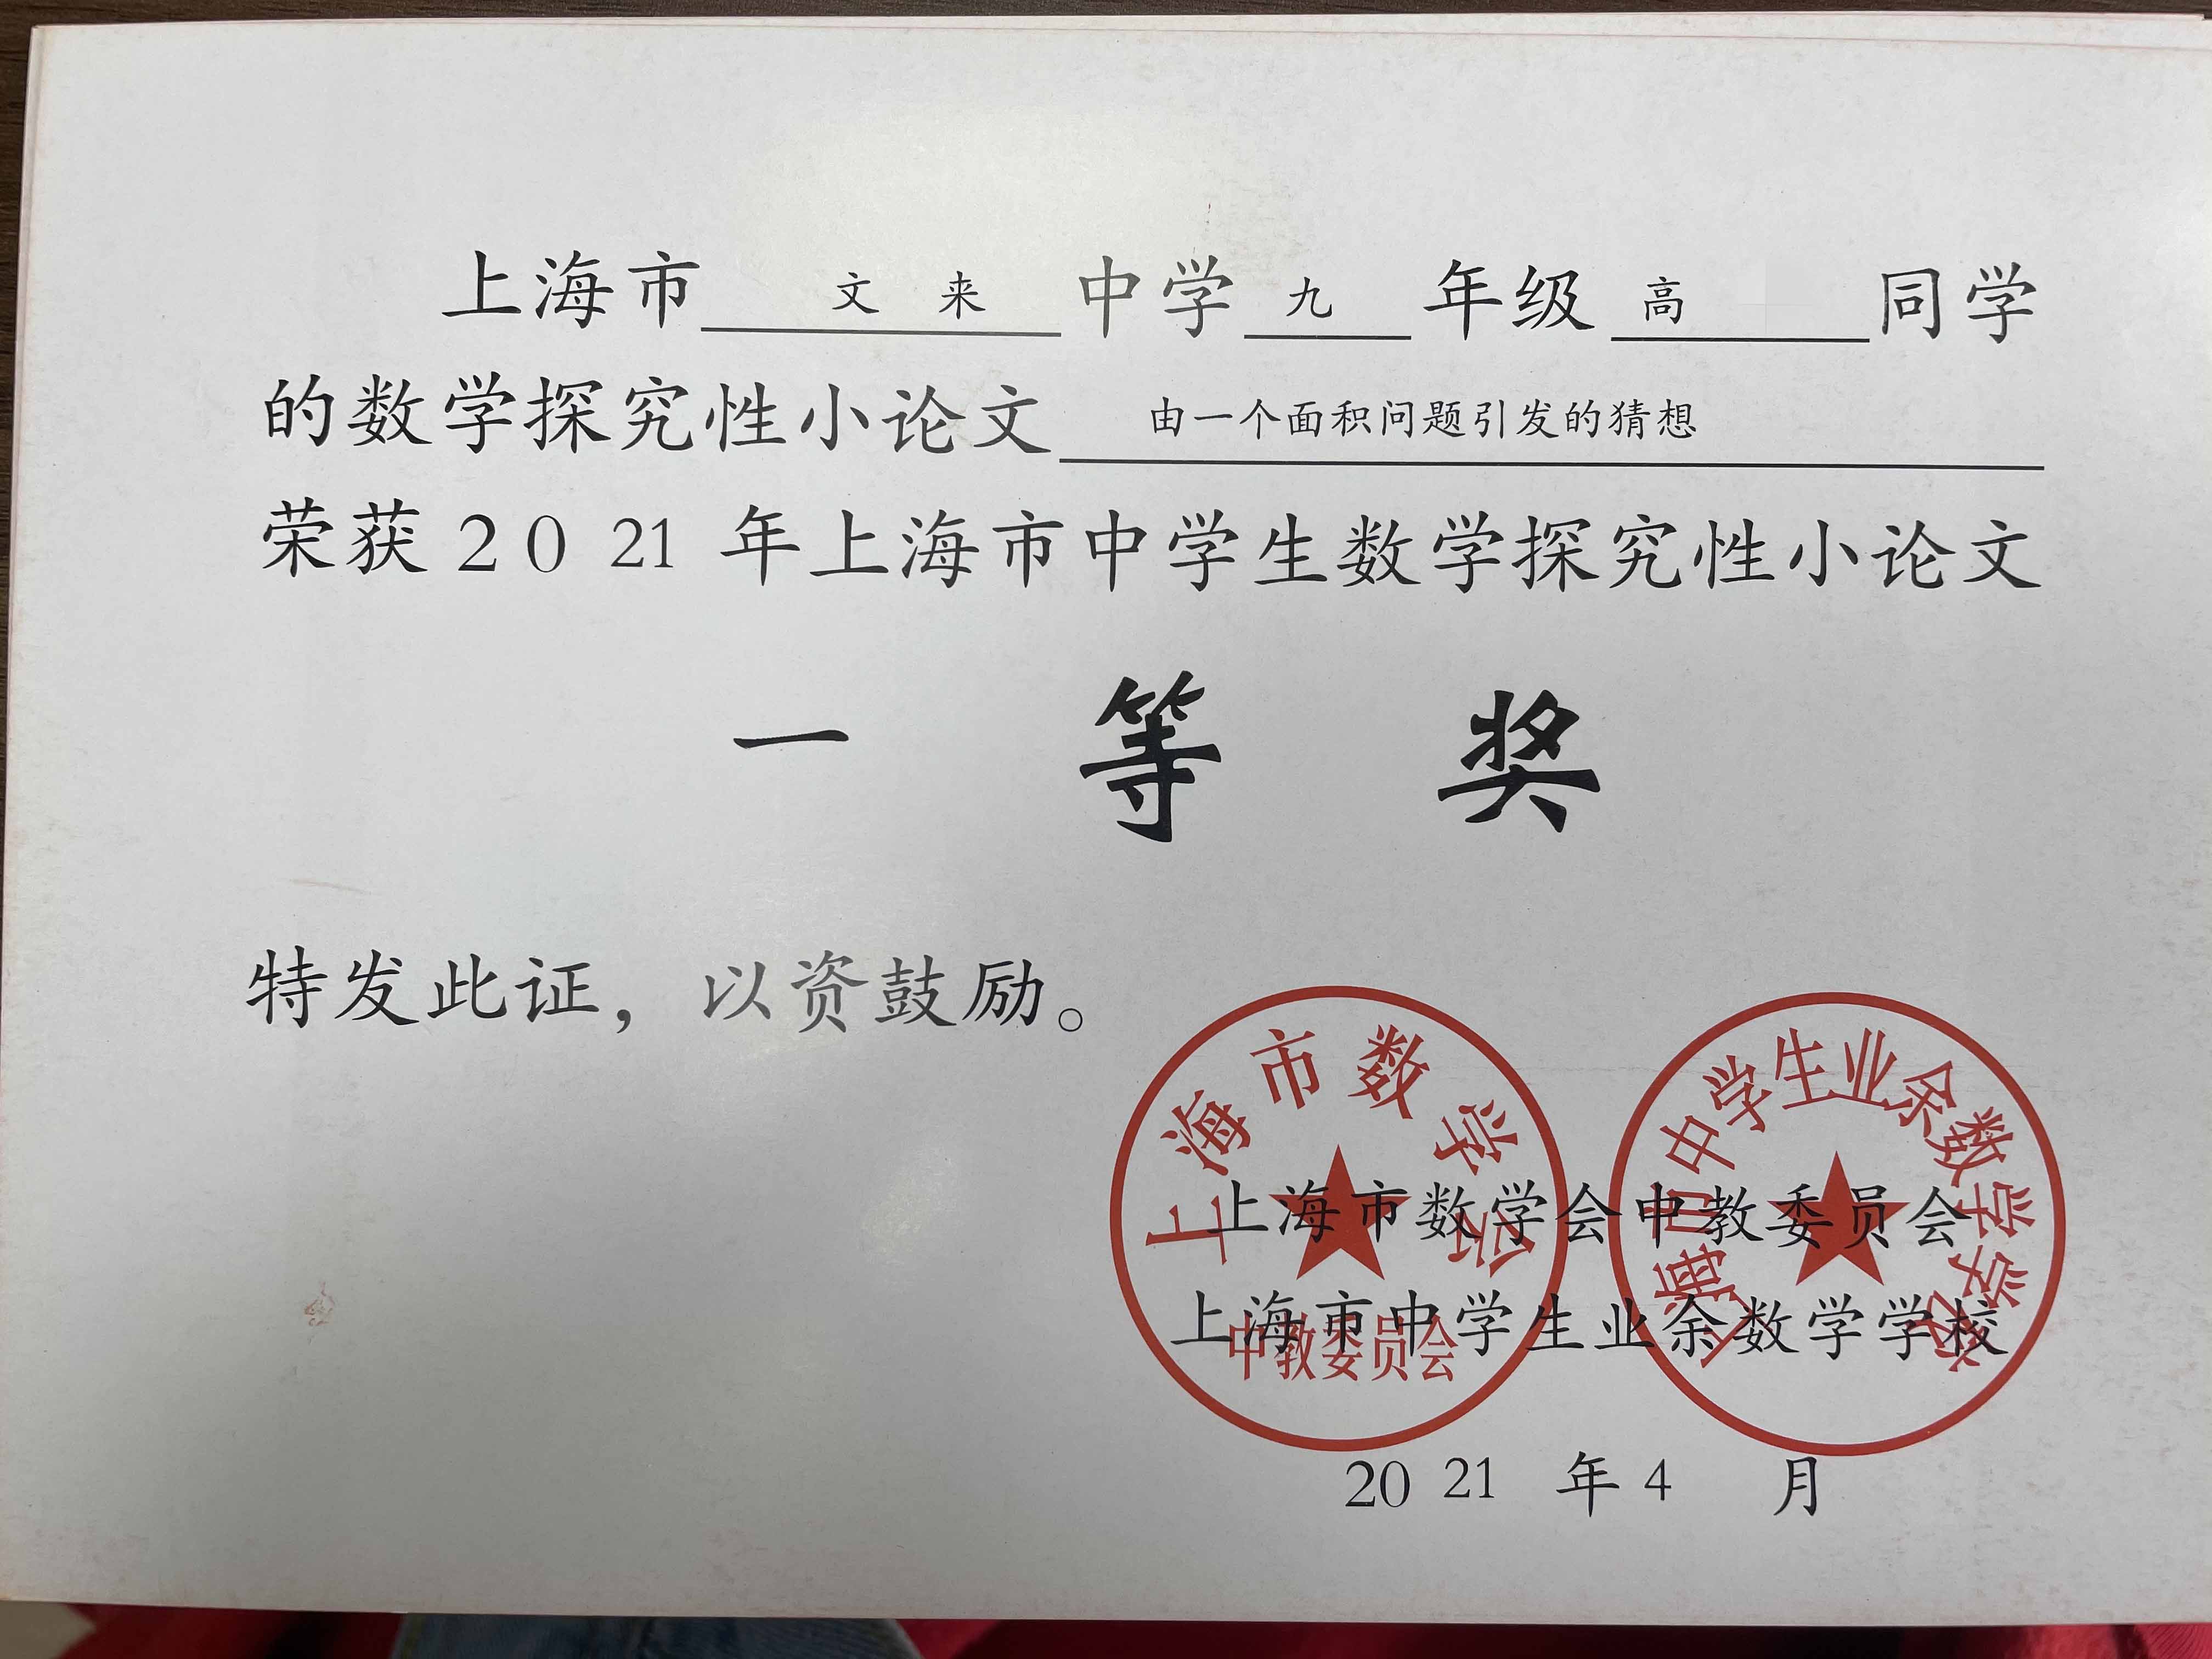 上海市 文来 中学 九 年级 高 同学
的数学探究性小论文 由一个面积问题引发的猜想
荣获2021年上海市中学生数学探究性小论文
一等奖
特发此证，以资鼓励。
上海市数学会
中教委员会
上海市中学生业余数学学校
上海市数学会中教委员会
上海市中学生业余数学学校
2021年4月